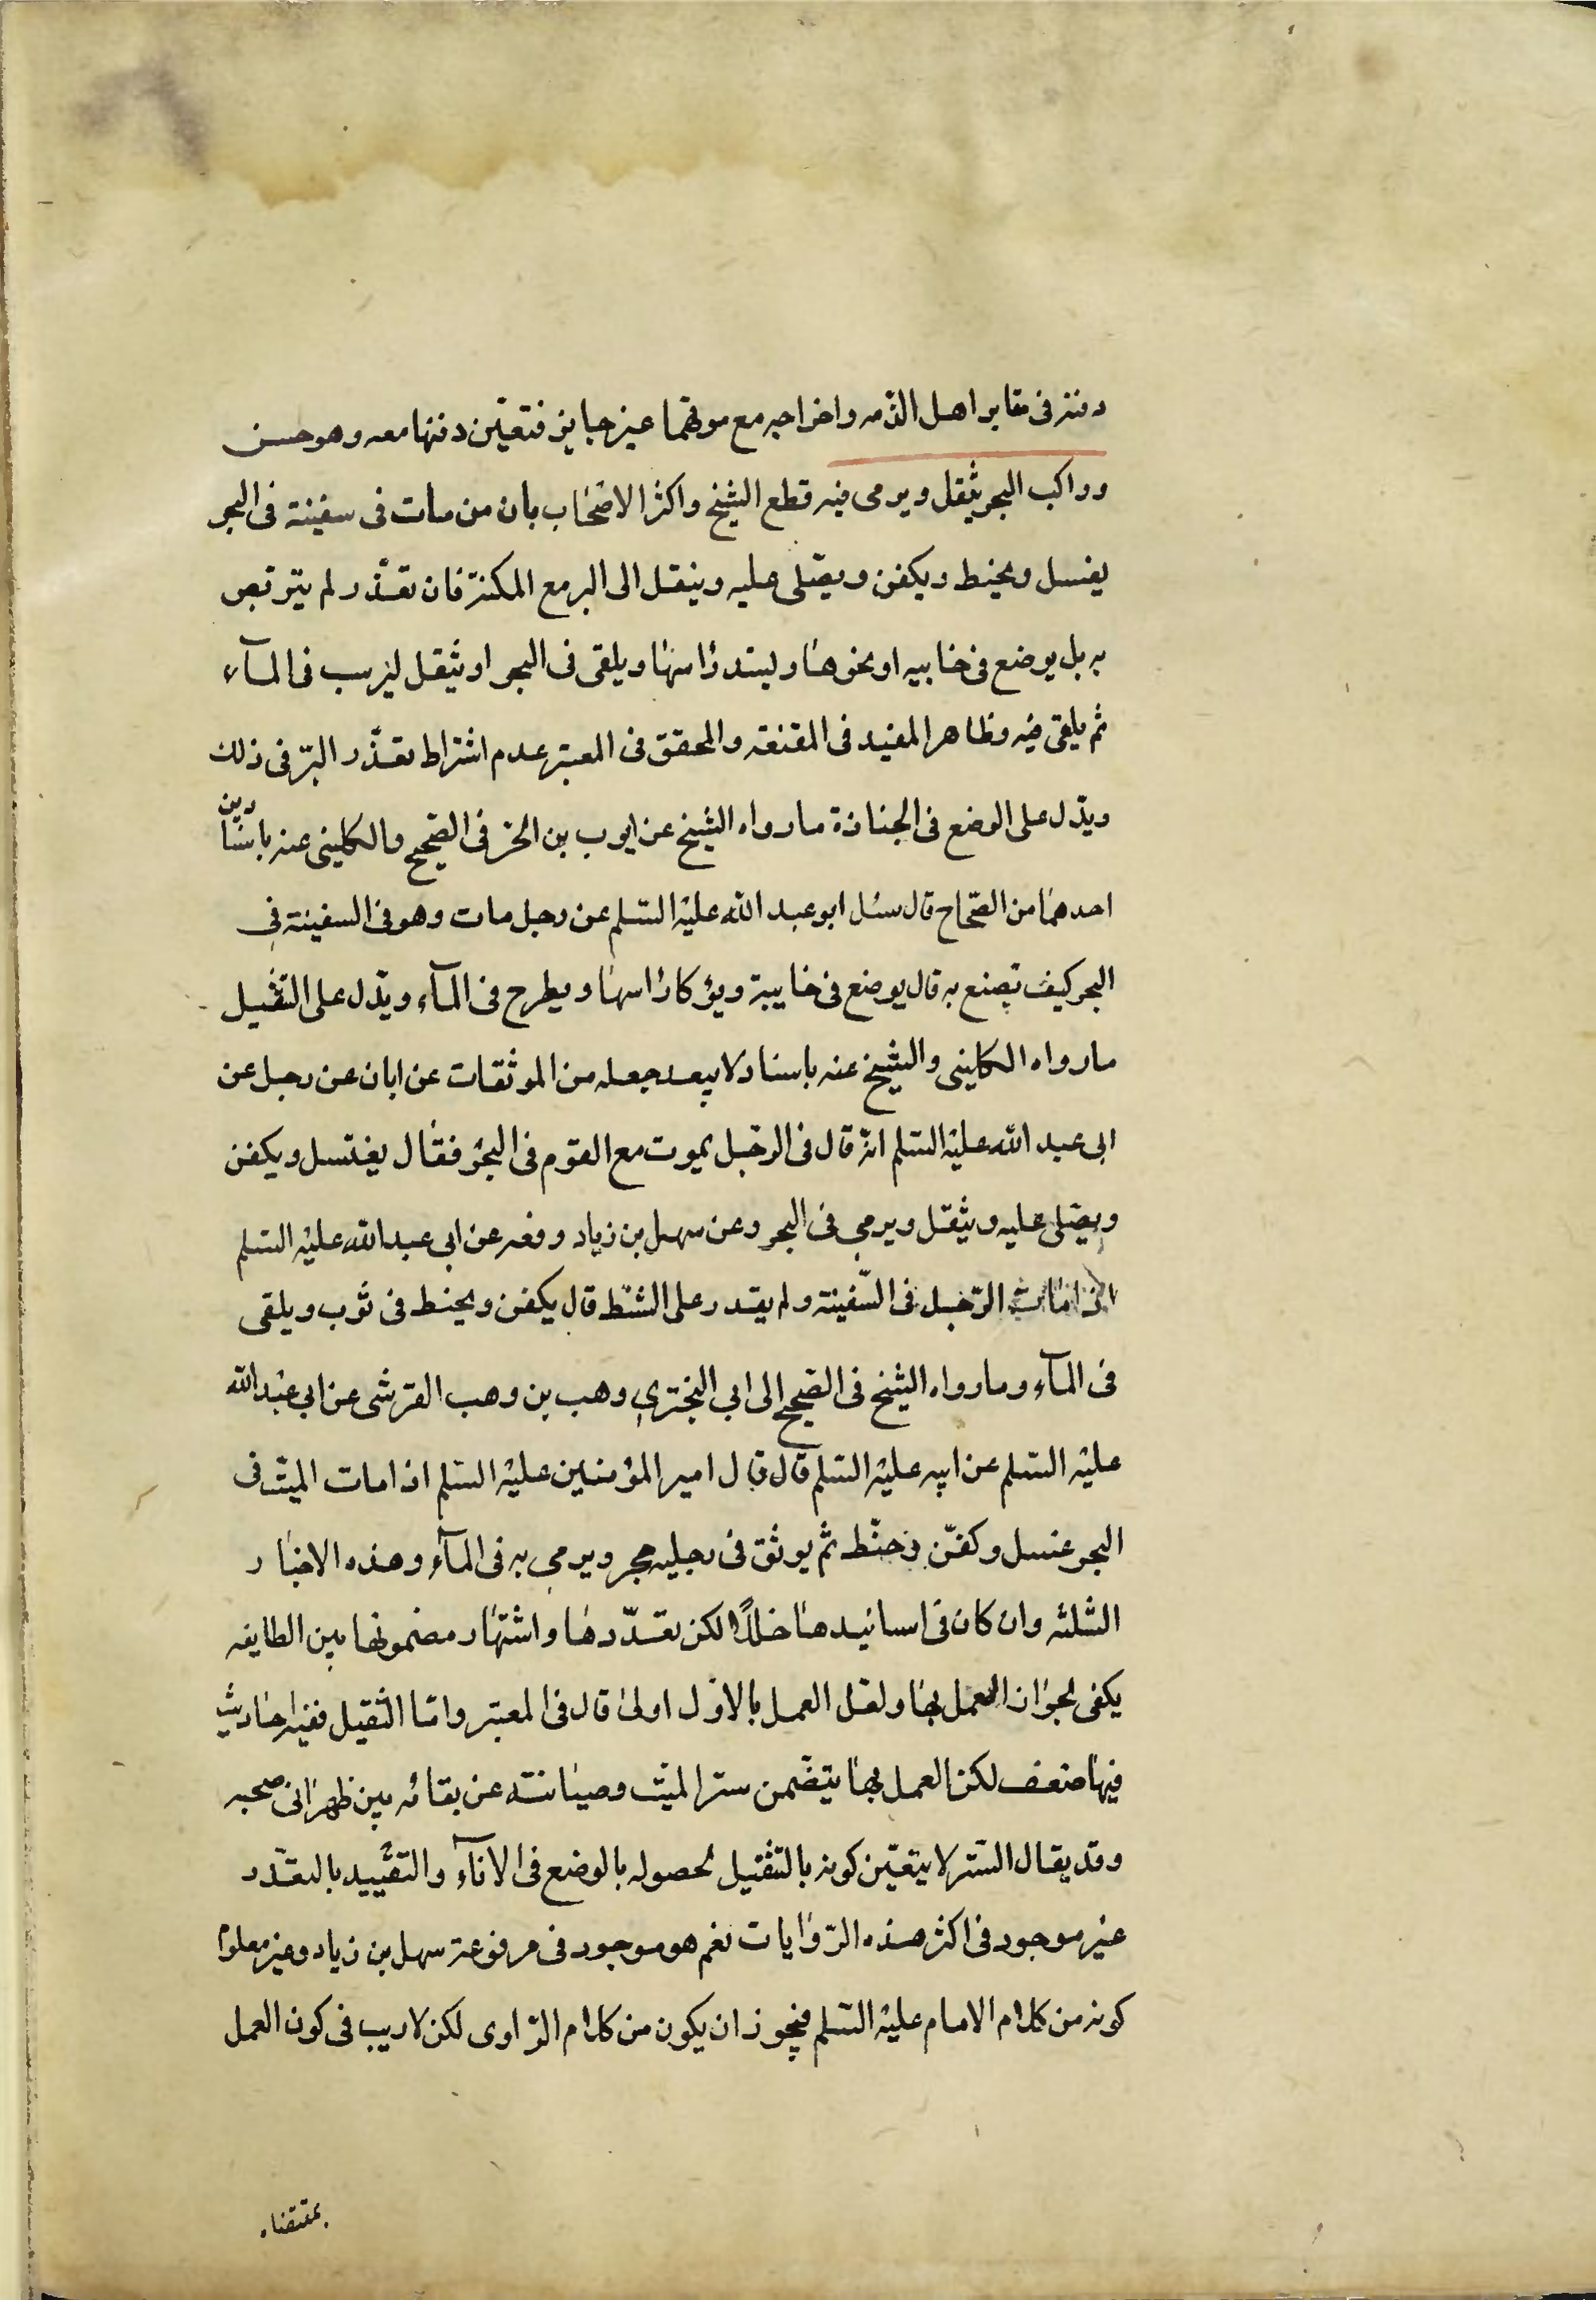 دفنه فى مقابر اهل الذمه واخراجه مع موتهما غير جايز فتعيّن دفنها معه وهو حسن
وراكب البحر يثقل ويرمى فيه قطع الشيخ واكثر الاصحاب بان من مات فى سفينة فى البحر
يغسل ويحنط ويكفن ويصّلى عليه وينقل الى البر مع المكنة فان تعذّر لم يتربص
به بل يوضع فى خابيه او نحوها ويسد راسها ويلقى فى البحر او يثقل ليرسب فى المآء
ثم يلقى فيه وظاهر المفيد فى المقنعة والمحقق فى المعتبر عدم اشتراط تعذّر البرّ فى ذلك
ويدّل على الوضع فى الجنازة ما رواه الشيخ عن ايوب بن الحر فى الصّحيح والكلينى عنه باسنادين
احدهما من الصّحاح قال سئل ابو عبد الله عليه السّلم عن رجل مات وهو فى السفينة فى
البحر كيف تصنع به قال يوضع فى خابية ويؤكا راسها ويطرح فى المآء ويدّل على التثقيل
ما رواه الكلينى والشيخ عنه باسناد لا يبعد جعله من الموثقات عن ابان عن رجل عن
ابى عبد الله عليه السّلم انّه قال فى الرّجل يموت مع القوم فى البحر فقال يغتسل ويكفن
ويصّلى عليه ويثقل ويرمى فى البحر وعن سهل بن زياد رفعه عن ابى عبد الله عليه السّلم
اذا مات الرّجل فى السّفينة ولم يقدر على الشّط قال يكفن ويحنط فى ثوب ويلقى
فى المآء وما رواه الشيخ فى الصّحيح الى ابى البخترى وهب بن وهب القرشى عن ابى عبد الله
عليه السّلم عن ابيه عليه السّلم قال قال امير المؤمنين عليه السّلم اذا مات الميّت فى
البحر غسل وكفّن وحنّط ثم يوثق فى رجليه حجر ويرمى به فى المآء وهذه الاخبار
الثلثه وان كان فى اسانيدها خللاً لكن تعدّدها واشتهار مضمونها بين الطايفه
يكفى لجواز العمل بها ولعل العمل بالاوّل اولى قال فى المعتبر وامّا الثقيل ففيه احاديث
فيها ضعف لكن العمل بها يتضّمن ستر الميّت وصيانته عن بقائه بين ظهرانى صحبه
وقد يقال السّتر لا يتعيّن كونه بالتّثقيل لحصوله بالوضع فى الانآء والتقييد بالتعذّر
غير موجود فى اكثر هذه الرّوايات نعم هو موجود فى مرفوعة سهل بن زياد وغير معلوم
كونه من كلام الامام عليه السّلم فيجوز ان يكون من كلام الرّاوى لكن لا ريب فى كون العمل
بمقتضاه